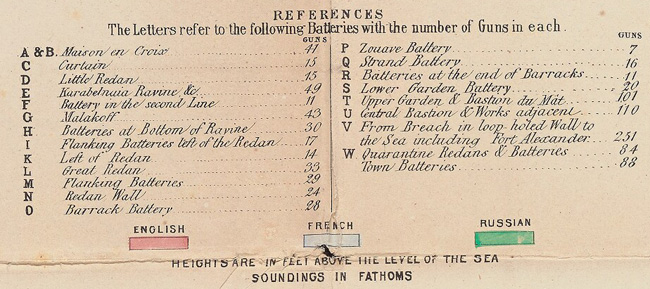 REFERENCES
The Letters refer to the following Batteries with the number of Guns in each.
GUNS
A & B. Maison en Croix 41
C Curtain 15
D Little Redan 15
E Karabelnaia Ravine &c. 49
F Battery in the second Line 11
G Malakoff 43
H Batteries at Bottom of Ravine 30
I Flanking Batteries left of the Redan 17
K Left of Redan 14
L Great Redan 33
M Flanking Batteries 29
N Redan Wall 24
O Barrack Battery 28
GUNS
P Zouave Battery 7
Q Strand Battery 16
R Batteries at the end of Barracks 11
S Lower Garden Battery 20
T Upper Garden & Bastion du Mât 101
U Central Bastion & Works adjacent 110
V From Breach in loop holed Wall to
the Sea including Fort Alexander 251
W Quarantine Redans & Batteries 84
Town Batteries 88
ENGLISH FRENCH RUSSIAN
HEIGHTS ARE IN FEET ABOVE THE LEVEL OF THE SEA
SOUNDINGS IN FATHOMS